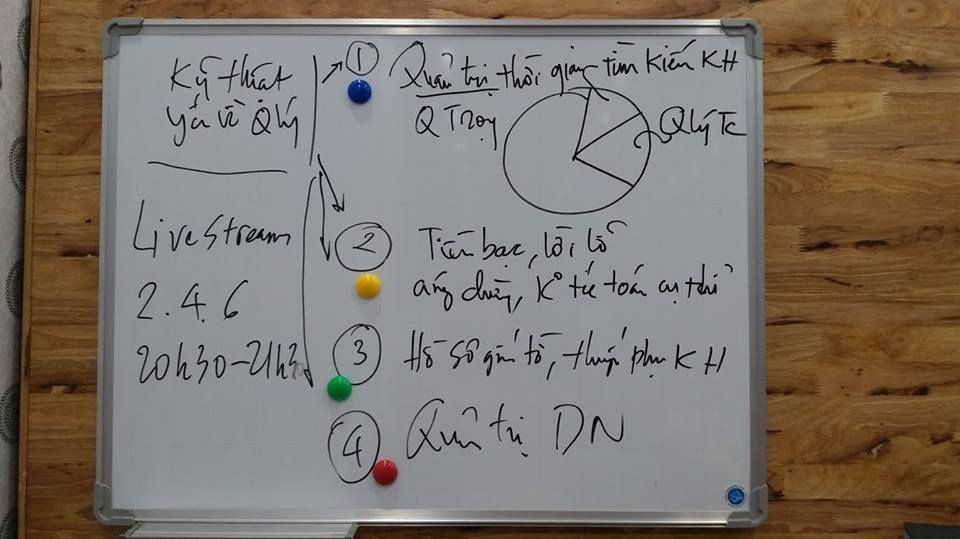 Kỹ thuật
yếu về Q lý
Live Stream
2.4.6
20h30-21h30
1
Quản trị thời gian, tìm kiếm KH
Q Trọng
Q lý Tc
2
Tiền bạc, lời lỗ
áng chừng, K° tế toán cụ thể
3
Hồ sơ giấy tờ, thuyết phục KH
4
Quản trị DN